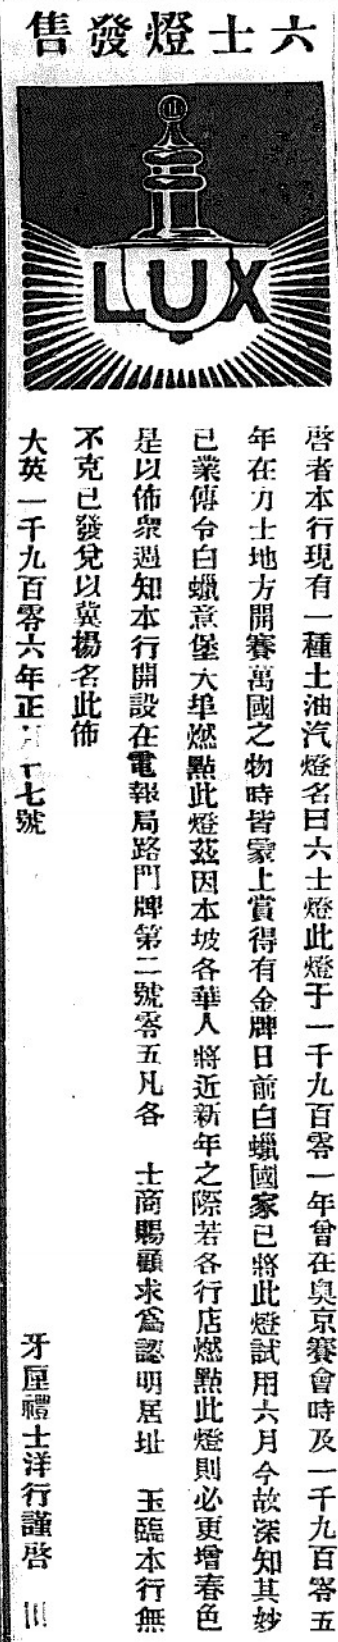 六士燈發售
LUX
啓者本行現有一種土油汽燈名曰六士燈此燈于一千九百零一年曾在奧京賽會時及一千九百零五
年在力士地方開賽萬國之物時皆蒙上賞得有金牌日前白蠟國家已將此燈試用六月今故深知其妙
已業傳令白蠟意堡大埠燃點此燈茲因本坡各華人將近新年之際若各行店燃點此燈則必更增春色
是以佈衆過知本行開設在電報局路門牌第二號零五凡各 士商賜顧求爲認明居址 玉臨本行無
不克已發兌以冀揚名此佈
大英一千九百零六年正月十七號
牙厘禮士洋行謹啓